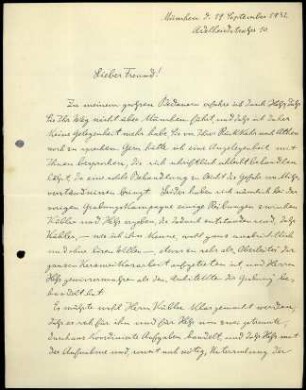 München d. 19 September 1932
Adelheidstraße 10
Lieber Freund!
Zu meinem großen Bedauern erfahre ich durch Höhn, daß
Sie Ihr Weg nicht über München führt, und daß ich daher
keine Gelegenheit mehr habe Sie vor Ihrer Rückkehr nach Athen
noch zu sprechen. Gern hätte ich eine Angelegenheit mit
Ihnen besprochen, die sich schriftlich schlecht behandeln
läßt, da eine solche Behandlung zu leicht die Gefahr von Miß-
verständnissen bringt. Leider haben sich nämlich bei der
vorigen Grabungskampagne einige Reibungen zwischen
Kübler und ergeben, die dadurch entstanden sind, daß
Kübler, – wie ich ihn kenne, wohl ganz unabsichtlich
und ohne bösen Willen –, etwas zu sehr als Oberleiter der
ganzen Kerameikosarbeit aufgetreten ist und Herrn
gewissermaßen als den Architekten der Grabung be-
handelt hat.
Es müßte wohl Herrn Kübler klargemacht werden,
daß es sich für ihn und für um zwei getrennte,
durchaus koordinierte Aufgaben handelt, und daß mit
der Aufnahme und, soweit noch nötig, Untersuchung der